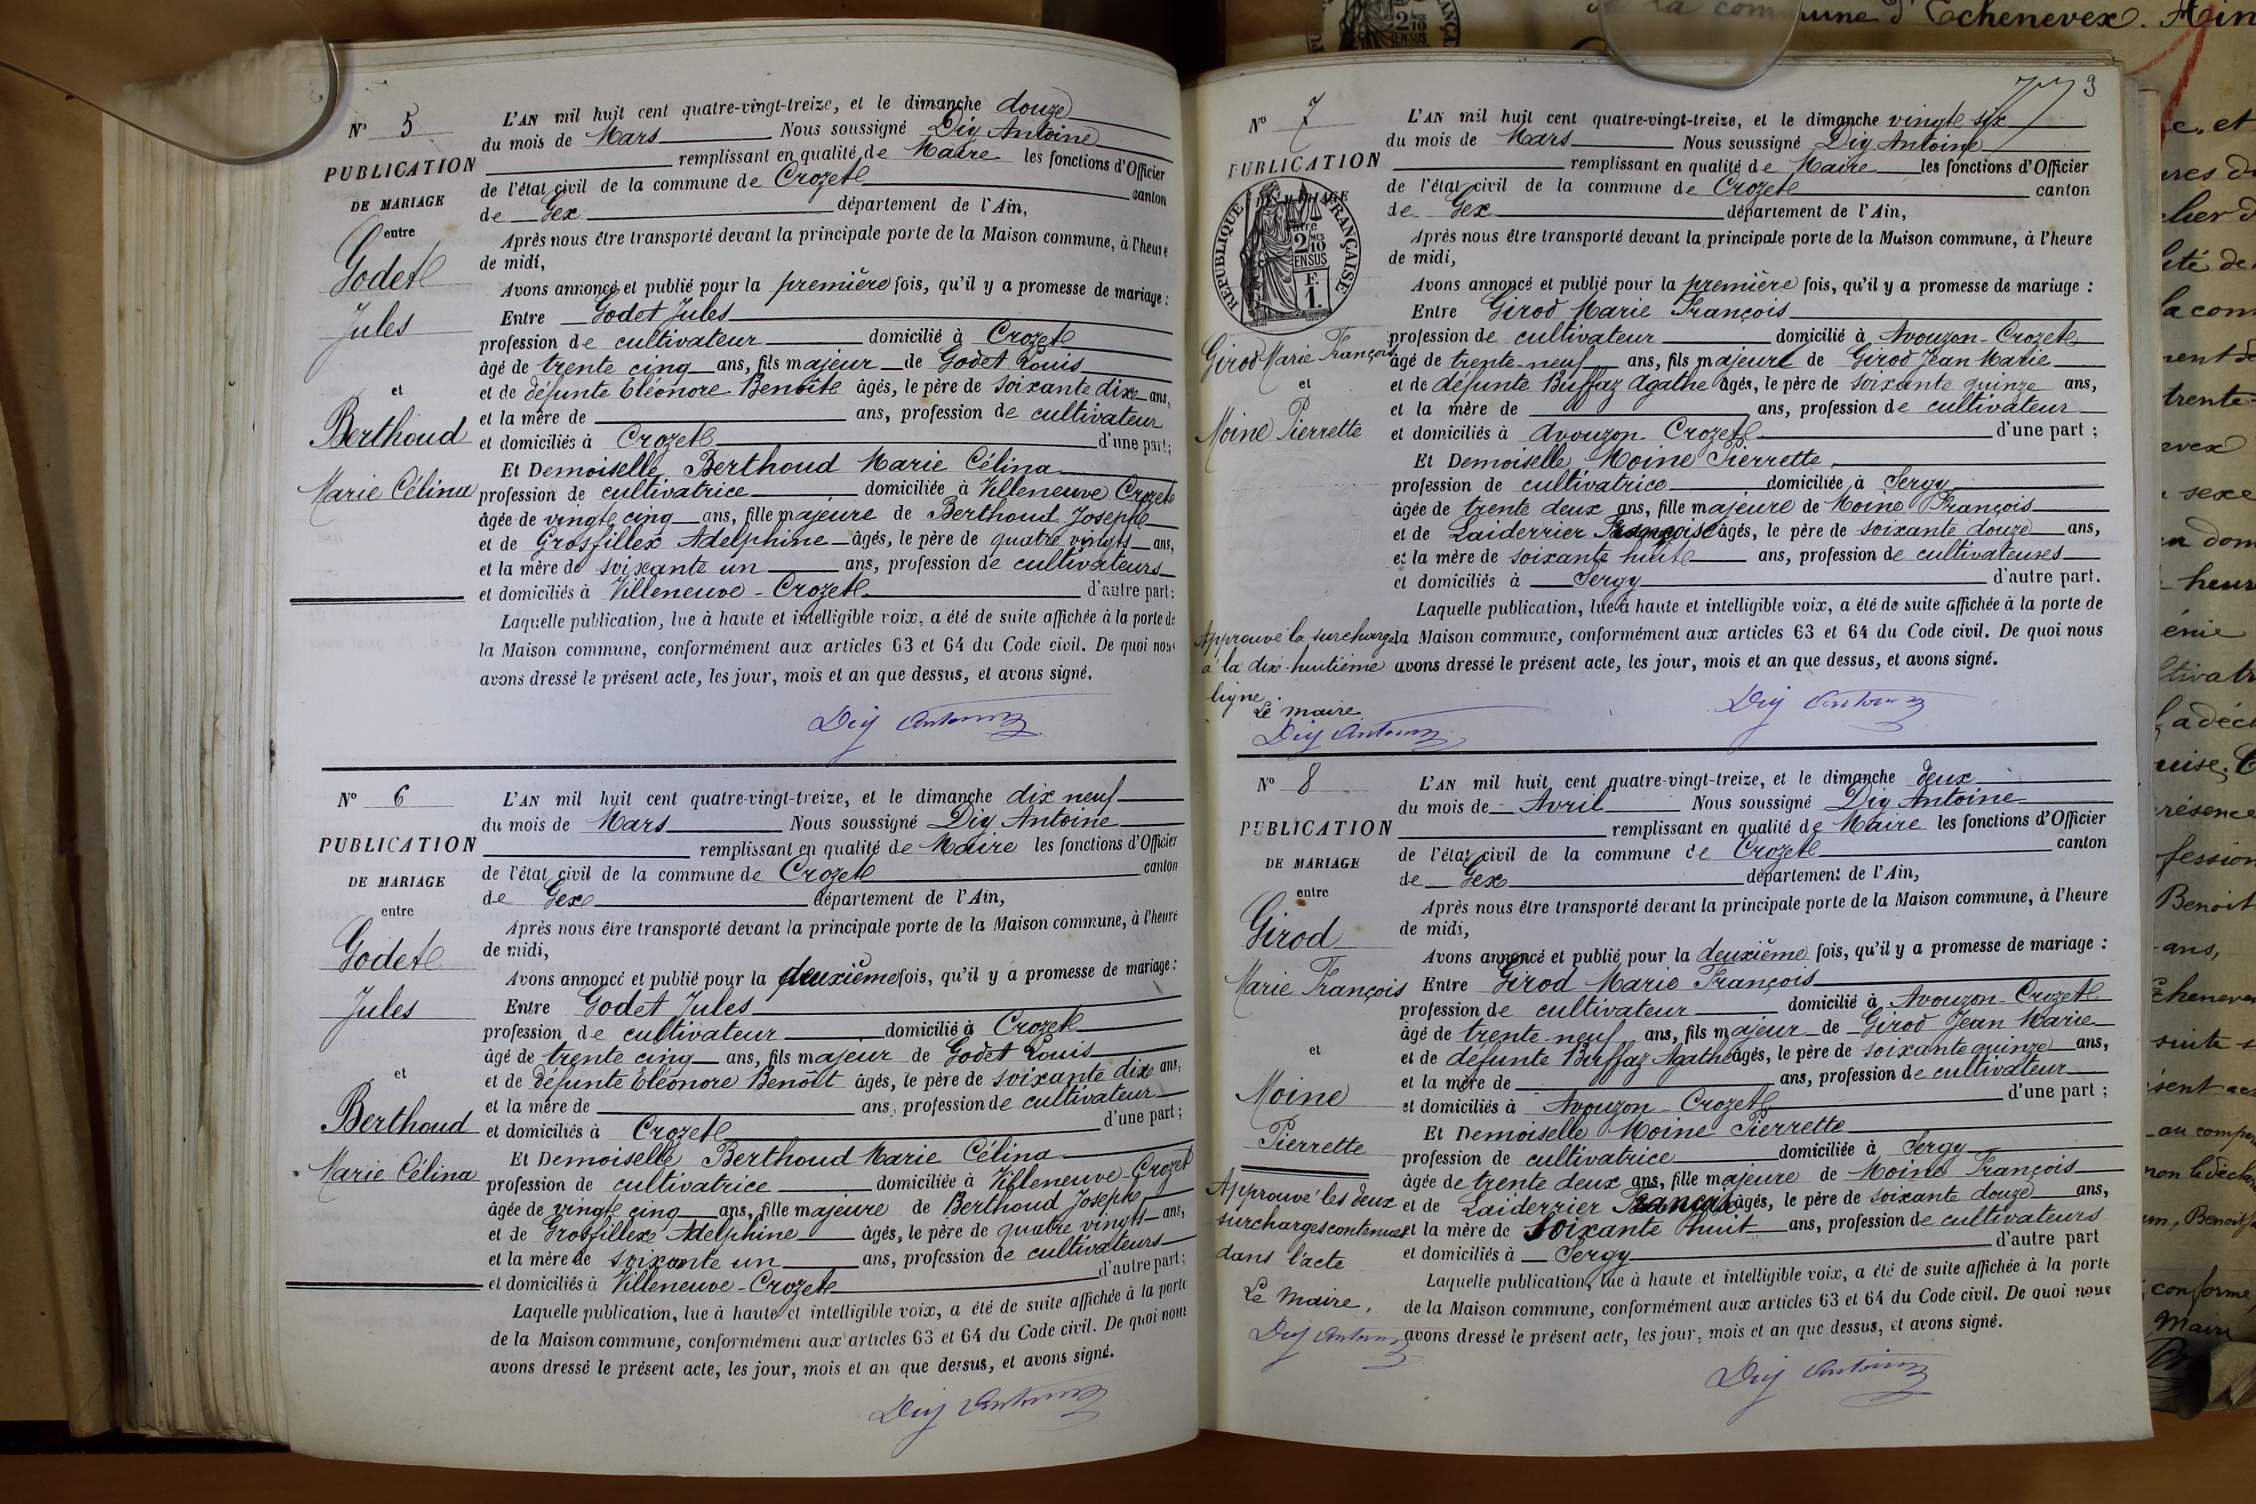 N° 5
PUBLICATION
DE MARIAGE
entre
Godet
Jules
et
Berthoud
Marie Célina
L'AN mil huit cent quatre-vingt-treize, et le dimanche douze
du mois de Mars Nous soussigné Dig Antoine
remplissant en qualité de Maire les fonctions d'Officier
de l'état civil de la commune de Crozet canton
de Gex département de l'Ain,
Après nous être transporté devant la principale porte de la Maison commune, à l'heure
de midi,
Avons annoncé et publié pour la première fois, qu'il y a promesse de mariage :
Entre Godet Jules
profession de cultivateur domicilié à Crozet
âgé de trente cinq ans, fils majeur de Godet Louis
et de défunte Eléonore Benoît âgés, le père de soixante dix ans,
et la mère de ans, profession de cultivateur
et domiciliés à Crozet d'une part ;
Et Demoiselle Berthoud Marie Célina
profession de cultivatrice domiciliée à Villeneuve Crozet
âgée de vingt cinq ans, fille majeure de Berthoud Joseph
et de Grosfillex Adelphine âgés, le père de quatre vingts ans,
et la mère de soixante un ans, profession de cultivateurs
et domiciliés à Villeneuve - Crozet d'autre part ;
Laquelle publication, lue à haute et intelligible voix, a été de suite affichée à la porte de
la Maison commune, conformément aux articles 63 et 64 du Code civil. De quoi nous
avons dressé le présent acte, les jour, mois et an que dessus, et avons signé.
Dig Antoine
N° 6
PUBLICATION
DE MARIAGE
entre
Godet
Jules
et
Berthoud
Marie Célina
L'AN mil huit cent quatre-vingt-treize, et le dimanche dix neuf
du mois de Mars Nous soussigné Dig Antoine
remplissant en qualité de Maire les fonctions d'Officier
de l'état civil de la commune de Crozet canton
de Gex département de l'Ain,
Après nous être transporté devant la principale porte de la Maison commune, à l'heure
de midi,
Avons annoncé et publié pour la deuxième fois, qu'il y a promesse de mariage :
Entre Godet Jules
profession de cultivateur domicilié à Crozet
âgé de trente cinq ans, fils majeur de Godet Louis
et de défunte Eléonore Benoît âgés, le père de soixante dix ans,
et la mère de ans, profession de cultivateur
et domiciliés à Crozet d'une part ;
Et Demoiselle Berthoud Marie Célina
profession de cultivatrice domiciliée à Villeneuve-Crozet
âgée de vingt cinq ans, fille majeure de Berthoud Joseph
et de Grosfillex Adelphine âgés, le père de quatre vingts ans,
et la mère de soixante un ans, profession de cultivateurs
et domiciliés à Villeneuve - Crozet d'autre part ;
Laquelle publication, lue à haute et intelligible voix, a été de suite affichée à la porte
de la Maison commune, conformément aux articles 63 et 64 du Code civil. De quoi nous
avons dressé le présent acte, les jour, mois et an que dessus, et avons signé.
Dig Antoine
3
N° 7
PUBLICATION
DE MARIAGE
entre
RÉPUBLIQUE FRANÇAISE
2 10
EN SUS
F.
1.
Girod Marie François
et
Moine Pierrette
L'AN mil huit cent quatre-vingt-treize, et le dimanche vingt six
du mois de Mars Nous soussigné Dig Antoine
remplissant en qualité de Maire les fonctions d'Officier
de l'état civil de la commune de Crozet canton
de Gex département de l'Ain,
Après nous être transporté devant la principale porte de la Maison commune, à l'heure
de midi,
Avons annoncé et publié pour la première fois, qu'il y a promesse de mariage :
Entre Girod Marie François
profession de cultivateur domicilié à Avouzon-Crozet
âgé de trente-neuf ans, fils majeur de Girod Jean Marie
et de défunte Buffaz Agathe âgés, le père de soixante quinze ans,
et la mère de ans, profession de cultivateur
et domiciliés à Avouzon Crozet d'une part ;
Et Demoiselle Moine Pierrette
profession de cultivatrice domiciliée à Sergy
âgée de trente deux ans, fille majeure de Moine François
et de Laiderrier Françoise âgés, le père de soixante douze ans,
et la mère de soixante huit ans, profession de cultivateurs
et domiciliés à Sergy d'autre part.
Laquelle publication, lue à haute et intelligible voix, a été de suite affichée à la porte de
la Maison commune, conformément aux articles 63 et 64 du Code civil. De quoi nous
avons dressé le présent acte, les jour, mois et an que dessus, et avons signé.
Approuvé la surcharge
à la dix-huitième
ligne.
Le maire
Dig Antoine
Dig Antoine
N° 8
PUBLICATION
DE MARIAGE
entre
Girod
Marie François
et
Moine
Pierrette
L'AN mil huit cent quatre-vingt-treize, et le dimanche deux
du mois de Avril Nous soussigné Dig Antoine
remplissant en qualité de Maire les fonctions d'Officier
de l'état civil de la commune de Crozet canton
de Gex département de l'Ain,
Après nous être transporté devant la principale porte de la Maison commune, à l'heure
de midi,
Avons annoncé et publié pour la deuxième fois, qu'il y a promesse de mariage :
Entre Girod Marie François
profession de cultivateur domicilié à Avouzon-Crozet
âgé de trente-neuf ans, fils majeur de Girod Jean Marie
et de défunte Buffaz Agathe âgés, le père de soixante quinze ans,
et la mère de ans, profession de cultivateur
et domiciliés à Avouzon-Crozet d'une part ;
Et Demoiselle Moine Pierrette
profession de cultivatrice domiciliée à Sergy
âgée de trente deux ans, fille majeure de Moine François
et de Laiderrier Françoise âgés, le père de soixante douze ans,
et la mère de soixante huit ans, profession de cultivateurs
et domiciliés à Sergy d'autre part
Laquelle publication, lue à haute et intelligible voix, a été de suite affichée à la porte
de la Maison commune, conformément aux articles 63 et 64 du Code civil. De quoi nous
avons dressé le présent acte, les jour, mois et an que dessus, et avons signé.
Approuvé les deux
surcharges contenues
dans l'acte
Le Maire,
Dig Antoine
Dig Antoine
de la commune d'Echenevex. Ain